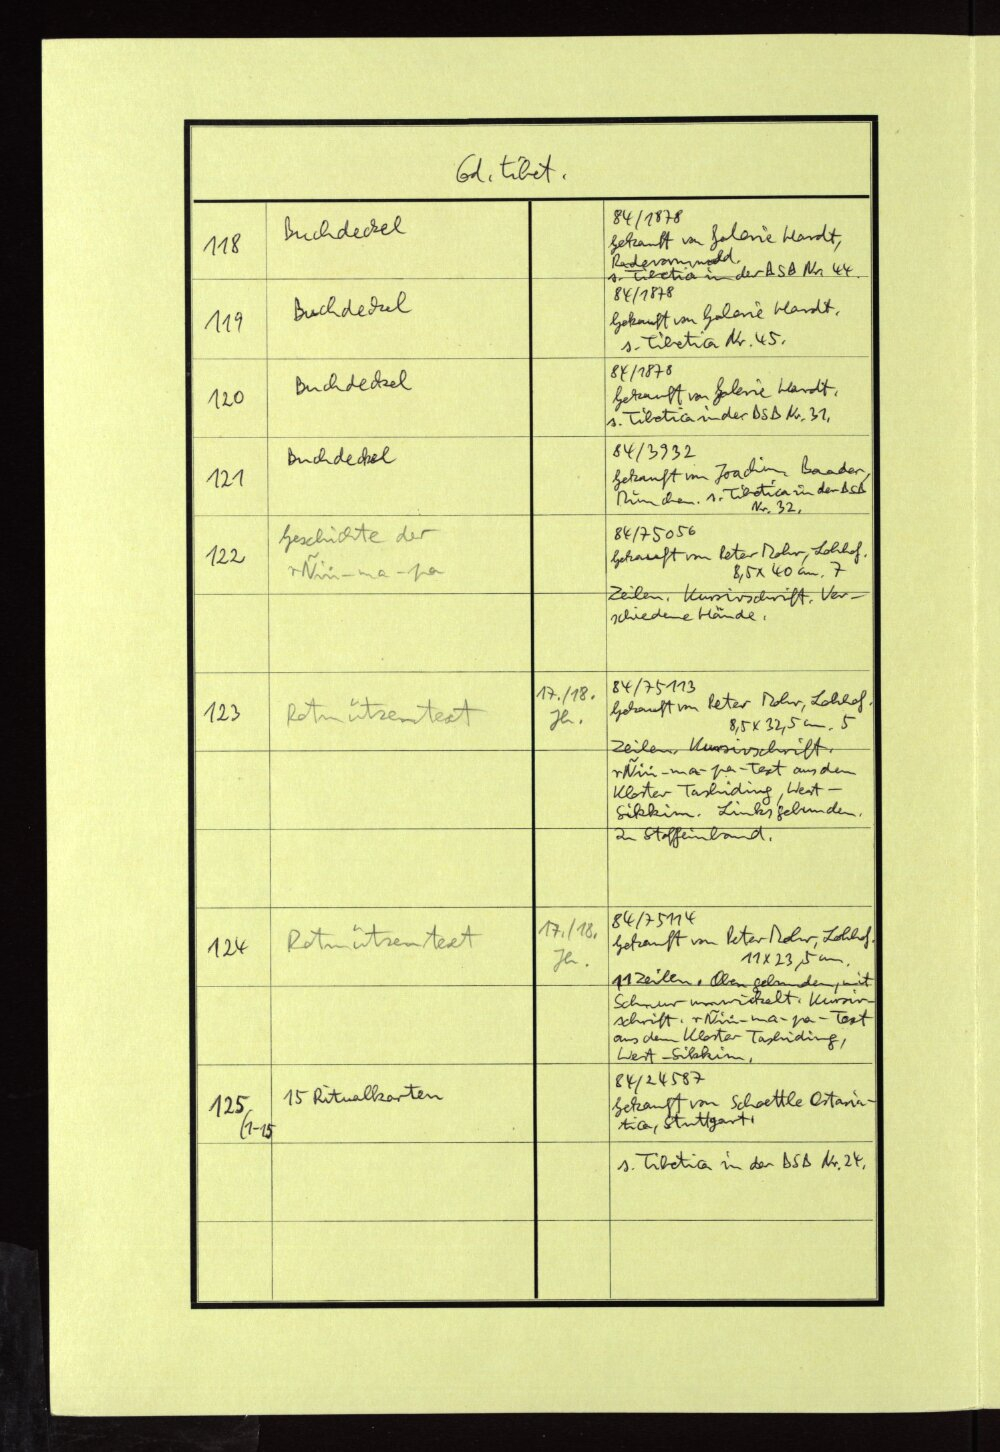 Cod. tibet.
118
Buchdeckel
84/1878
Gekauft von Galerie Hardt,
Radevormwald.
s. Tibetica in der BSB Nr. 44.
119
Buchdeckel
84/1878
Gekauft von Galerie Hardt.
s. Tibetica Nr. 45.
120
Buchdeckel
84/1878
Gekauft von Galerie Hardt.
s. Tibetica in der BSB Nr. 31.
121
Buchdeckel
84/3932
Gekauft von Joachim Baader,
München. s. Tibetica in der BSB
Nr. 32.
122
Geschichte der
rÑiṅ-ma-pa
84/75056
Gekauft von Peter Mohr, Lohhof.
8,5 x 40 cm. 7
Zeilen. Kursivschrift. Ver-
schiedene Hände.
123
Rotmützentext
17./18.
Jh.
84/75113
Gekauft von Peter Mohr, Lohhof.
8,5 x 32,5 cm. 5
Zeilen. Kursivschrift.
rÑiṅ-ma-pa-Text aus dem
Kloster Tashiding, West-
Sikkim. Links gebunden.
In Stoffeinband.
124
Rotmützentext
17./18.
Jh.
84/75114
Gekauft von Peter Mohr, Lohhof.
11 x 23,5 cm.
11 Zeilen. Oben gebunden, mit
Schnur umwickelt. Kursiv-
schrift. rÑiṅ-ma-pa-Text
aus dem Kloster Tashiding,
West-Sikkim.
125
(1-15
15 Ritualkarten
84/24587
Gekauft von Schoettle Ostasia-
tica, Stuttgart.
s. Tibetica in der BSB Nr. 24.